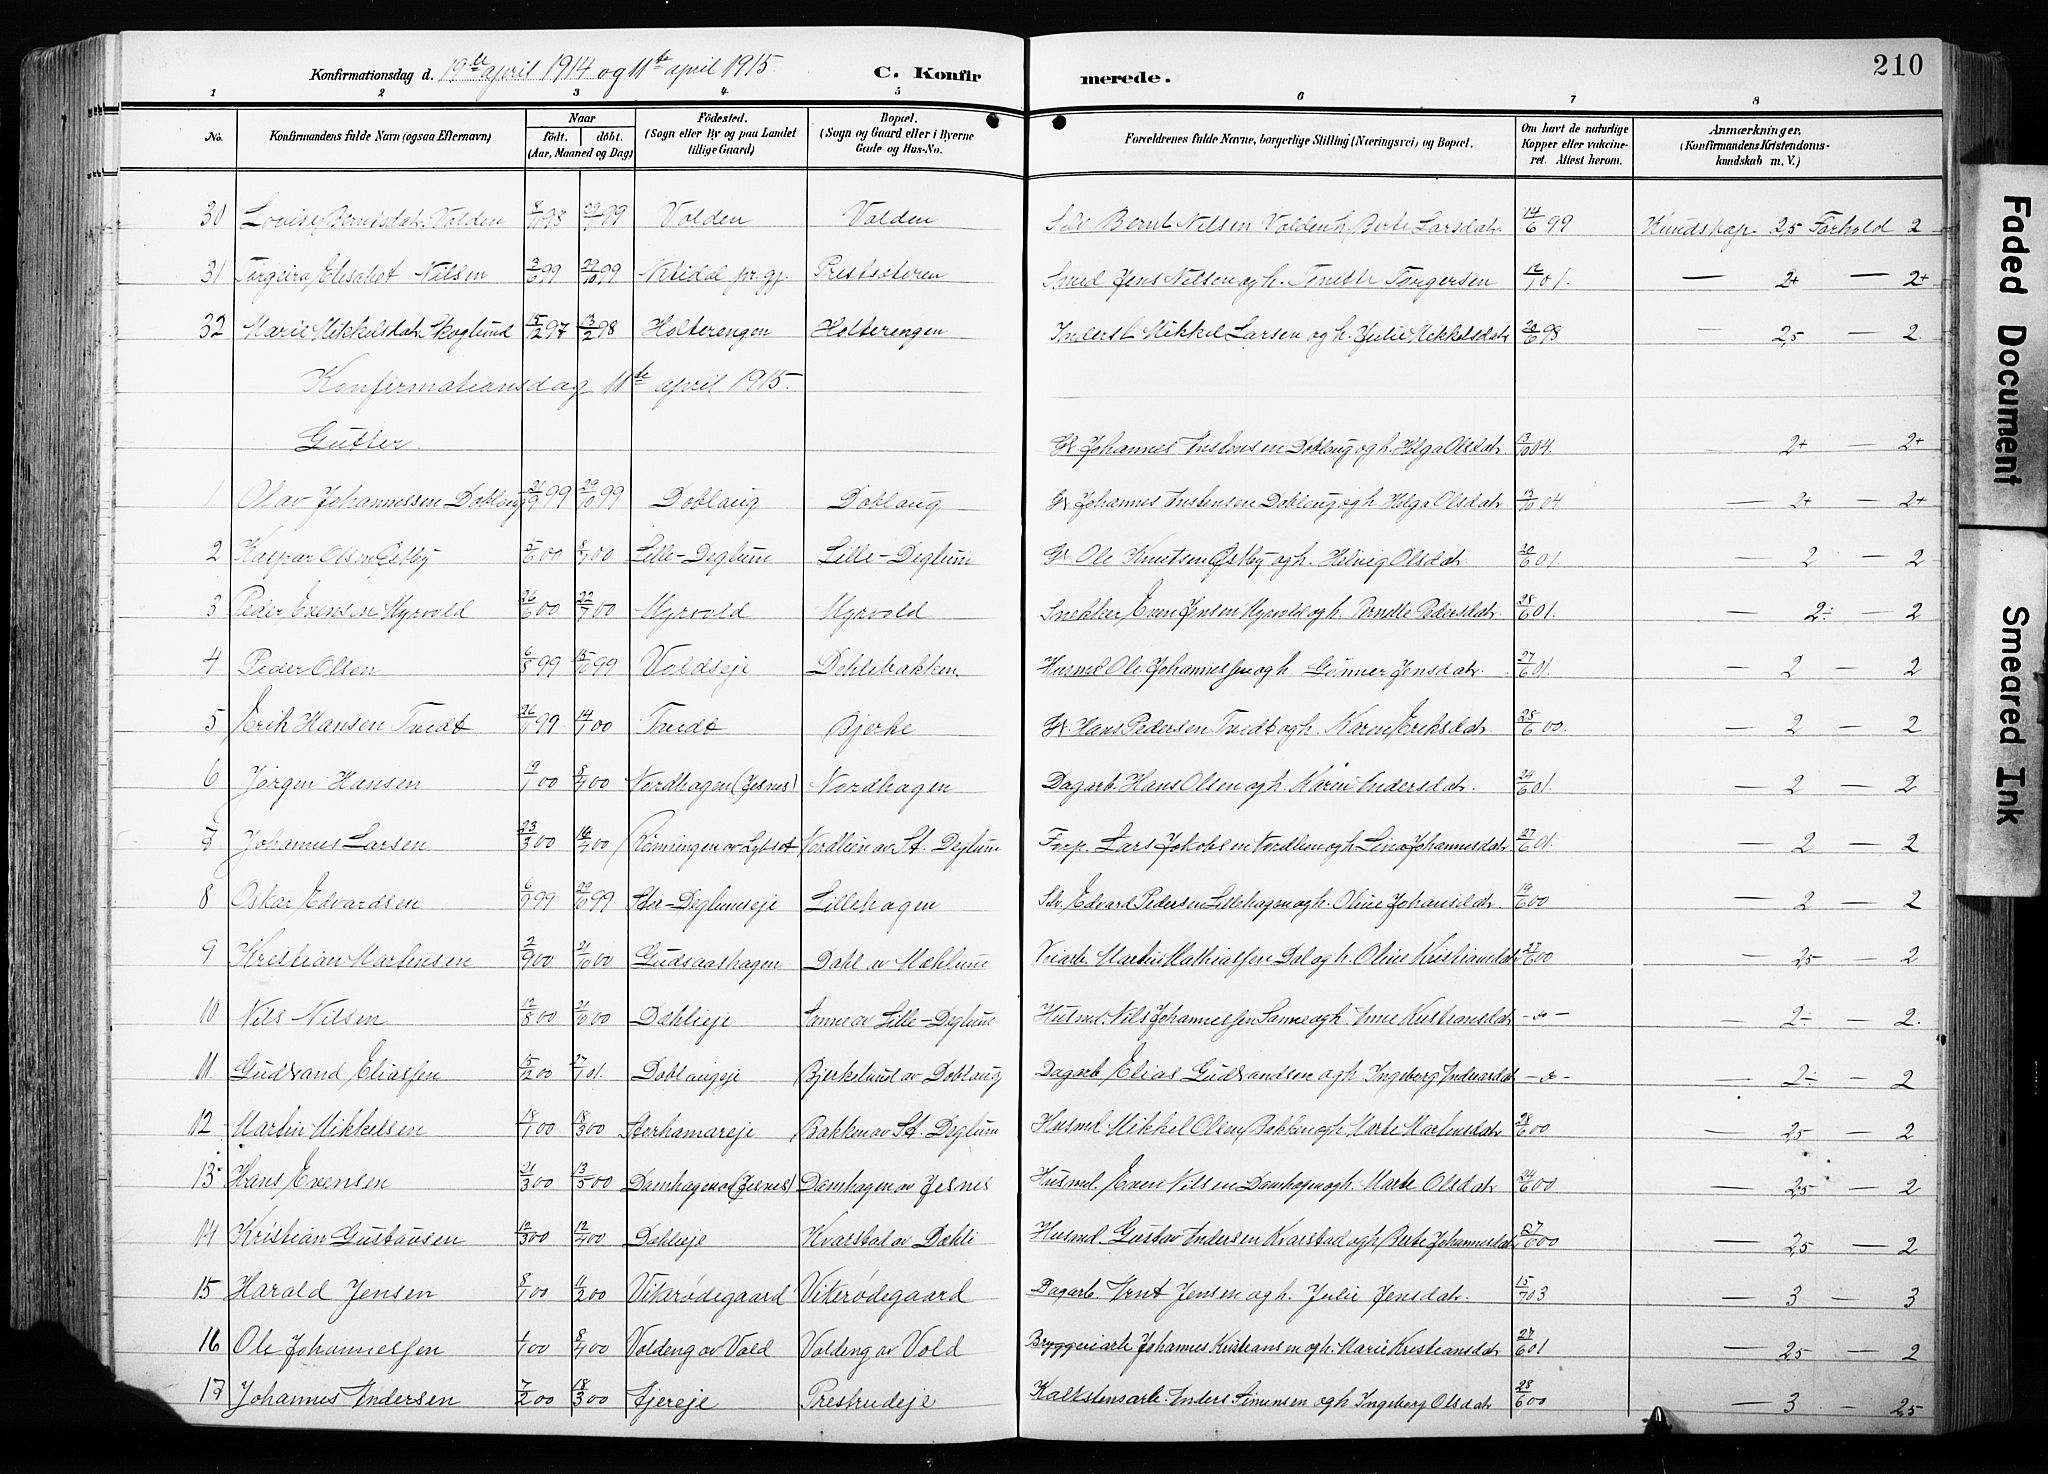 Konfirmationsdag d. 19de april 1914 og 11te april 1915. C. Konfir merede. 210
1 2 3 4 5 6 7 8
No. Konfirmandens fulde Navn (ogsaa Efternavn) Naar født. døbt. (Aar, Maaned og Dag) Fødested. (Sogn eller By og paa Landet tillige Gaard) Bopæl. (Sogn og Gaard eller i Byerne Gade og Hus-No. Forældrenes fulde Navne, borgerlige Stilling (Næringsvei) og Bopæl. Om havt de naturlige Kopper eller vakcineret. Attest herom. Anmærkninger. (Konfirmandens Kristendomskundskab m. V.)
30 Lovise Berntsdatr. Volden 8/1 98 29/1 99 Volden Volden Selv Bernt Nilsen Volden h. Berte Larsdatr 14/6 99 Kundskap 2,5 Forhold 2
31 Torgeira Elisabet Nilsen 3/6 99 29/10 99 Nitidal pr. gj. Prestsæteren Smed Jens Nilsen og h. Tonette Torgersen 12/7 01. — 2+ — 2+
32 Marie Mikkelsdatr Skoglund 15/12 97 13/2 98 Holterengen Holterengen Inderst Mikkel Larsen og h. Julie Mikkelsdatr 20/6 98 — 2,5 — 2.
Konfirmationsdag 11te april 1915.
Gutter. Gr. Johannes Instensen Doblaug og h. Helga Olsdatr 13/10 04. — 2+ — 2+
1 Olav Johannessen Doblaug 21/9 99 29/10 99 Doblaug Doblaug Gr. Johannes Instensen Doblaug og h Helga Olsdatr 13/10 04 — 2+ — 2+
2 Kaspar Olsen Østby 5/6 00 8/7 00 Lille-Deglum Lille-Deglum Gr. Ole Knutsen Østby og h. Helvig Olsdatr 20/6 01. — 2 — 2
3 Peder Evensen Myrvold 26/6 00 22/7 00 Myrvold Myrvold Snekker Even Jensen Myrvold og h. Pernelle Pedersdatr 28/6 01. — 2÷ — 2
4 Peder Olsen 6/8 99 15/10 99 Voldseje Dehlibakken Husmd Ole Johannessen og h Gunner Jensdatr. 27/6 01. — 2 — 2
5 Erik Hansen Tvedt 26/1 99 14/1 00 Tvedt Bjerke Gr. Hans Pedersen Tvedt og h. Karen Eriksdatr 28/6 00. — 2 — 2
6 Jørgen Hansen 19/1 00 8/4 00 Nordhagen (Jesnes) Nordhagen Dagarb. Hans Olsen og h. Karen Andersdatr. 24/6 01. — 2 — 2
7 Johannes Larsen 23/3 00 16/4 00 Rønningen av Lybset Nordlien av St. Deglum Forp. Lars Jakobsen Nordlien og h Lina Johannesdatr 27/6 01. — 2 — 2
8 Oskar Edvardsen 6/9 99 29/10 99 Stor-Deglumseje Lillehagen Slv. Edvard Pedersen Lillehagen og h. Oline Johansdatr. 19/6 00 — 2 — 2
9 Kristian Martinsen 2/9 00 21/10 00 Gudsaashagen Dahl av Mæhlum Veiarb Martin Mathiassen Dal og h. Oline Kristiansdatr 27/6 00 — 2,5 — 2
10 Nils Nilsen 12/8 00 21/10 00 Dæhlieje Sanne av Lille-Deglum Husmd. Nils Johannessen Sanne og h. Anne Kristiansdatr -"- — 2÷ — 2.
11 Gudbrand Eliassen 15/12 00 27/1 01. Doblaugeje Bjerkelund av Doblaug Dagarb Elias Gudbrandsen og h Ingeborg Indvardatr -"- — 2÷ — 2
12 Martin Mikkelsen 18/1 00 18/3 00 Storhamareje Bakken av St. Deglum Husmd Mikkel Olsen Bakken og h. Marte Martinsdatr 28/6 00 — 2,5 — 2
13. Hans Evensen 21/3 00 13/5 00 Damhagen av (Jesnes) Damhagen av Jesnes Husmd. Even Nilsen Damhagen og h. Marte Olsdatr 24/6 00 — 2,5 — 2
14 Kristian Gustavsen 12/3 00 12/4 00 Dæhlieje Kvarstad av Dæhli Husmd Gustav Andersen Kvarstad og h Berte Johannesdatr 27/6 00 — 2,5 — 2
15 Harald Jensen 8/1 00 11/2 00 Vikerødegaard Vikerødegaard Dagarb. Arnt Jensen og h. Julie Jensdatr. 15/7 03 — 3 — 3
16 Ole Johannessen 1/1 00 8/4 00 Voldeng av Vold Voldeng av Vold Bryggeriarb Johannes Kristiansen og h. Marie Kristiansdatr 27/6 01 — 2,5 — 2
17 Johannes Andersen 7/2 00 18/3 00 Fjereje Prestrudeje Kalkstensarb. Anders Simensen og h Ingeborg Olsdatr 28/6 00 — 3 — 2,5
Faded Document
Smeared Ink